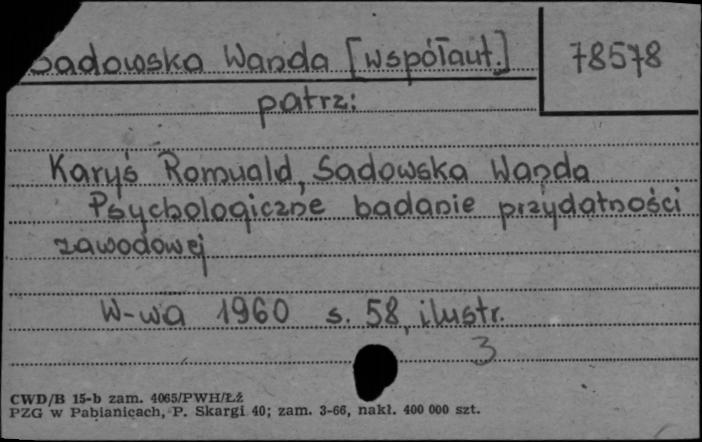 Sadowska Wanda [współaut.]
78578
patrz:
Karyś Romuald, Sadowska Wanda
Psychologiczne badanie przydatności
zawodowej
W-wa 1960 s. 58, ilustr.
3
CWD/B 15-b zam. 4065/PWH/Łż
PZG w Pabianicach, P. Skargi 40; zam. 3-66, nakł. 400 000 szt.